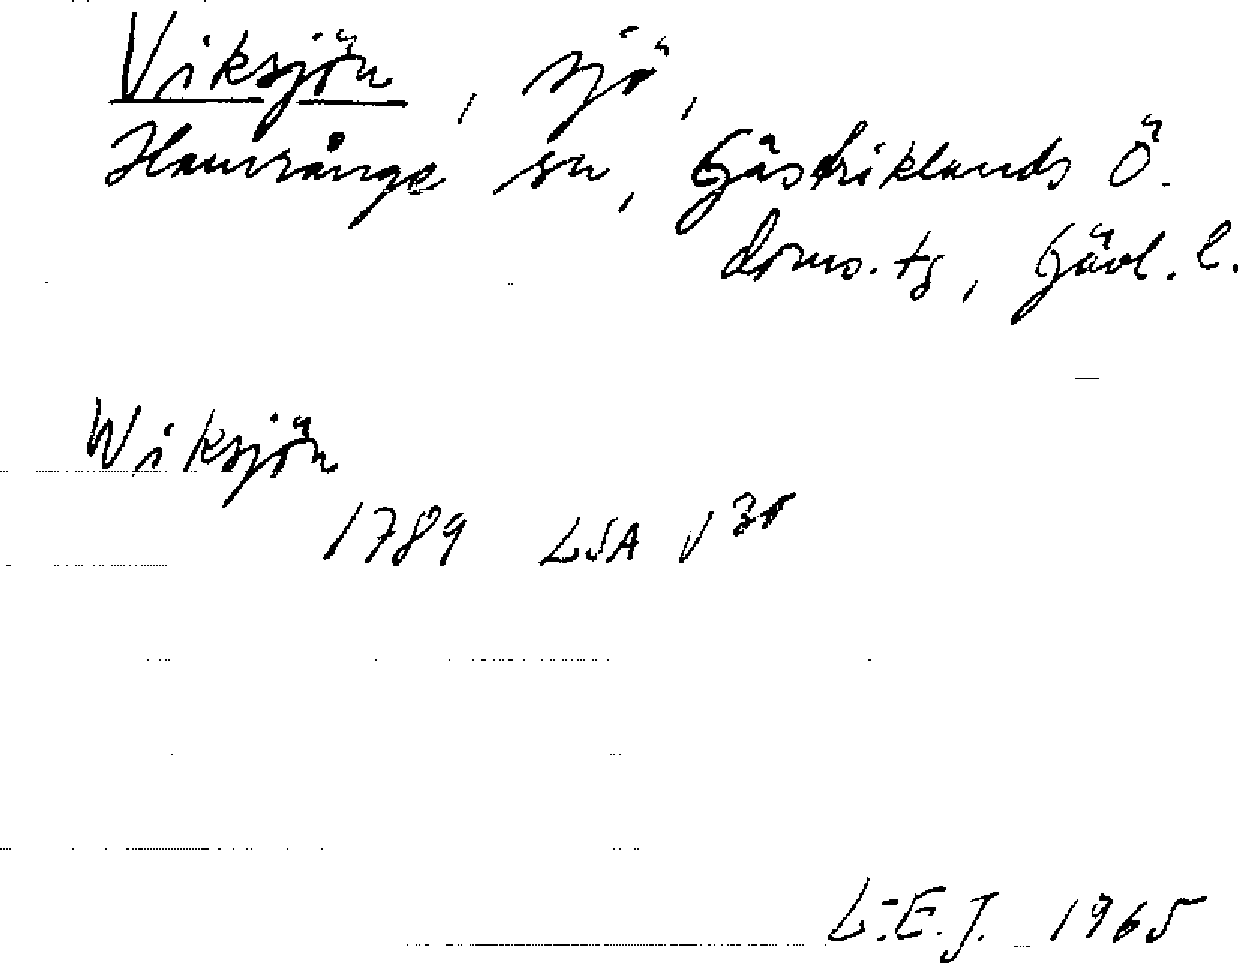 Viksjön, sjö,
Hamrånge sn, Gästriklands Ö.
doms. tg, Gävl. l.
Wiksjön
1789 LSA V 30
L.E.J. 1965